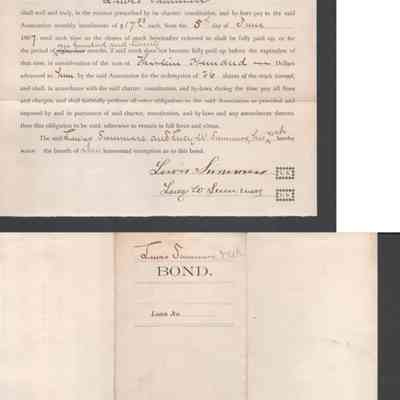 shall well and truly, in the manner prescribed by its charter, constitution, and by-laws pay to the said
Association monthly instalments of $17 each, from the 5th day of June
1897, until such time as the shares of stock hereinafter referred to shall be fully paid up, or for
one hundred and twenty
the period of months, if said stock does not become fully paid up before the expiration of
that time, in consideration of the sum of Thirteen Hundred Dollars
advanced to by the said Association for the redemption of 26 shares of the stock thereof,
and shall, in accordance with the said charter, constitution, and by-laws, during the time pay all fines
and charges, and shall faithfully perform all other obligations to the said Association as provided and
imposed by and in pursuance of said charter, constitution, and by-laws and any amendments thereto
then this obligation to be void, otherwise to remain in full force and virtue.
The said Lewis Summers and Lucy W. Summers, his wife, hereby
waive the benefit of homestead exemption as to this bond.
Lewis Summers
Lucy W Summers
Lewis Summers & wife
BOND.
Loan No.